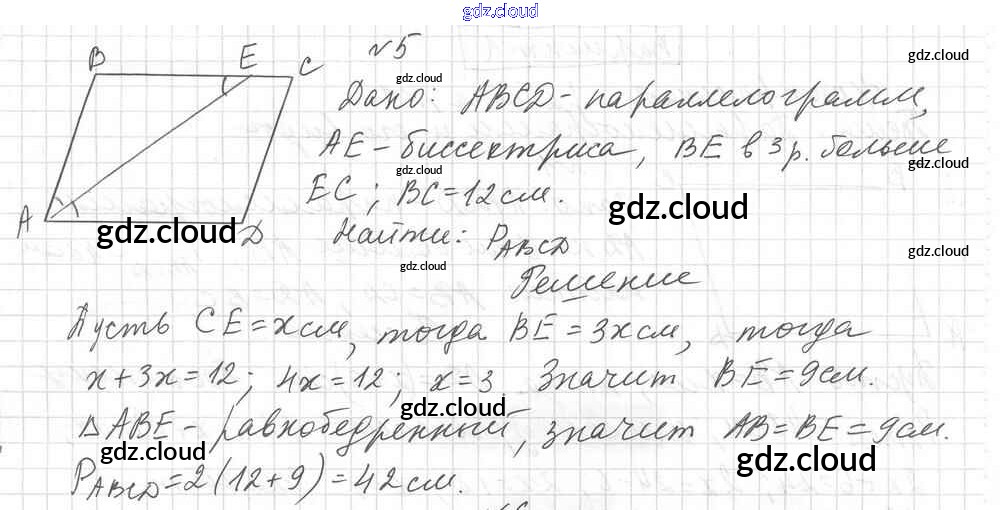 gdz.cloud
№5
gdz.cloud
B E C
gdz.cloud
Дано: ABCD - параллелограмм,
AE - биссектриса, BE в 3 р. больше
gdz.cloud
gdz.cloud
EC; BC = 12 см.
gdz.cloud
A D
gdz.cloud
Найти: P ABCD
gdz.cloud
gdz.cloud
Решение
Пусть CE = x см, тогда BE = 3x см, тогда
x + 3x = 12; 4x = 12; x = 3 Значит BE = 9 см.
gdz.cloud
△ABE - равнобедренный, значит AB = BE = 9 см.
gdz.cloud
gdz.cloud
P ABCD = 2(12 + 9) = 42 см.